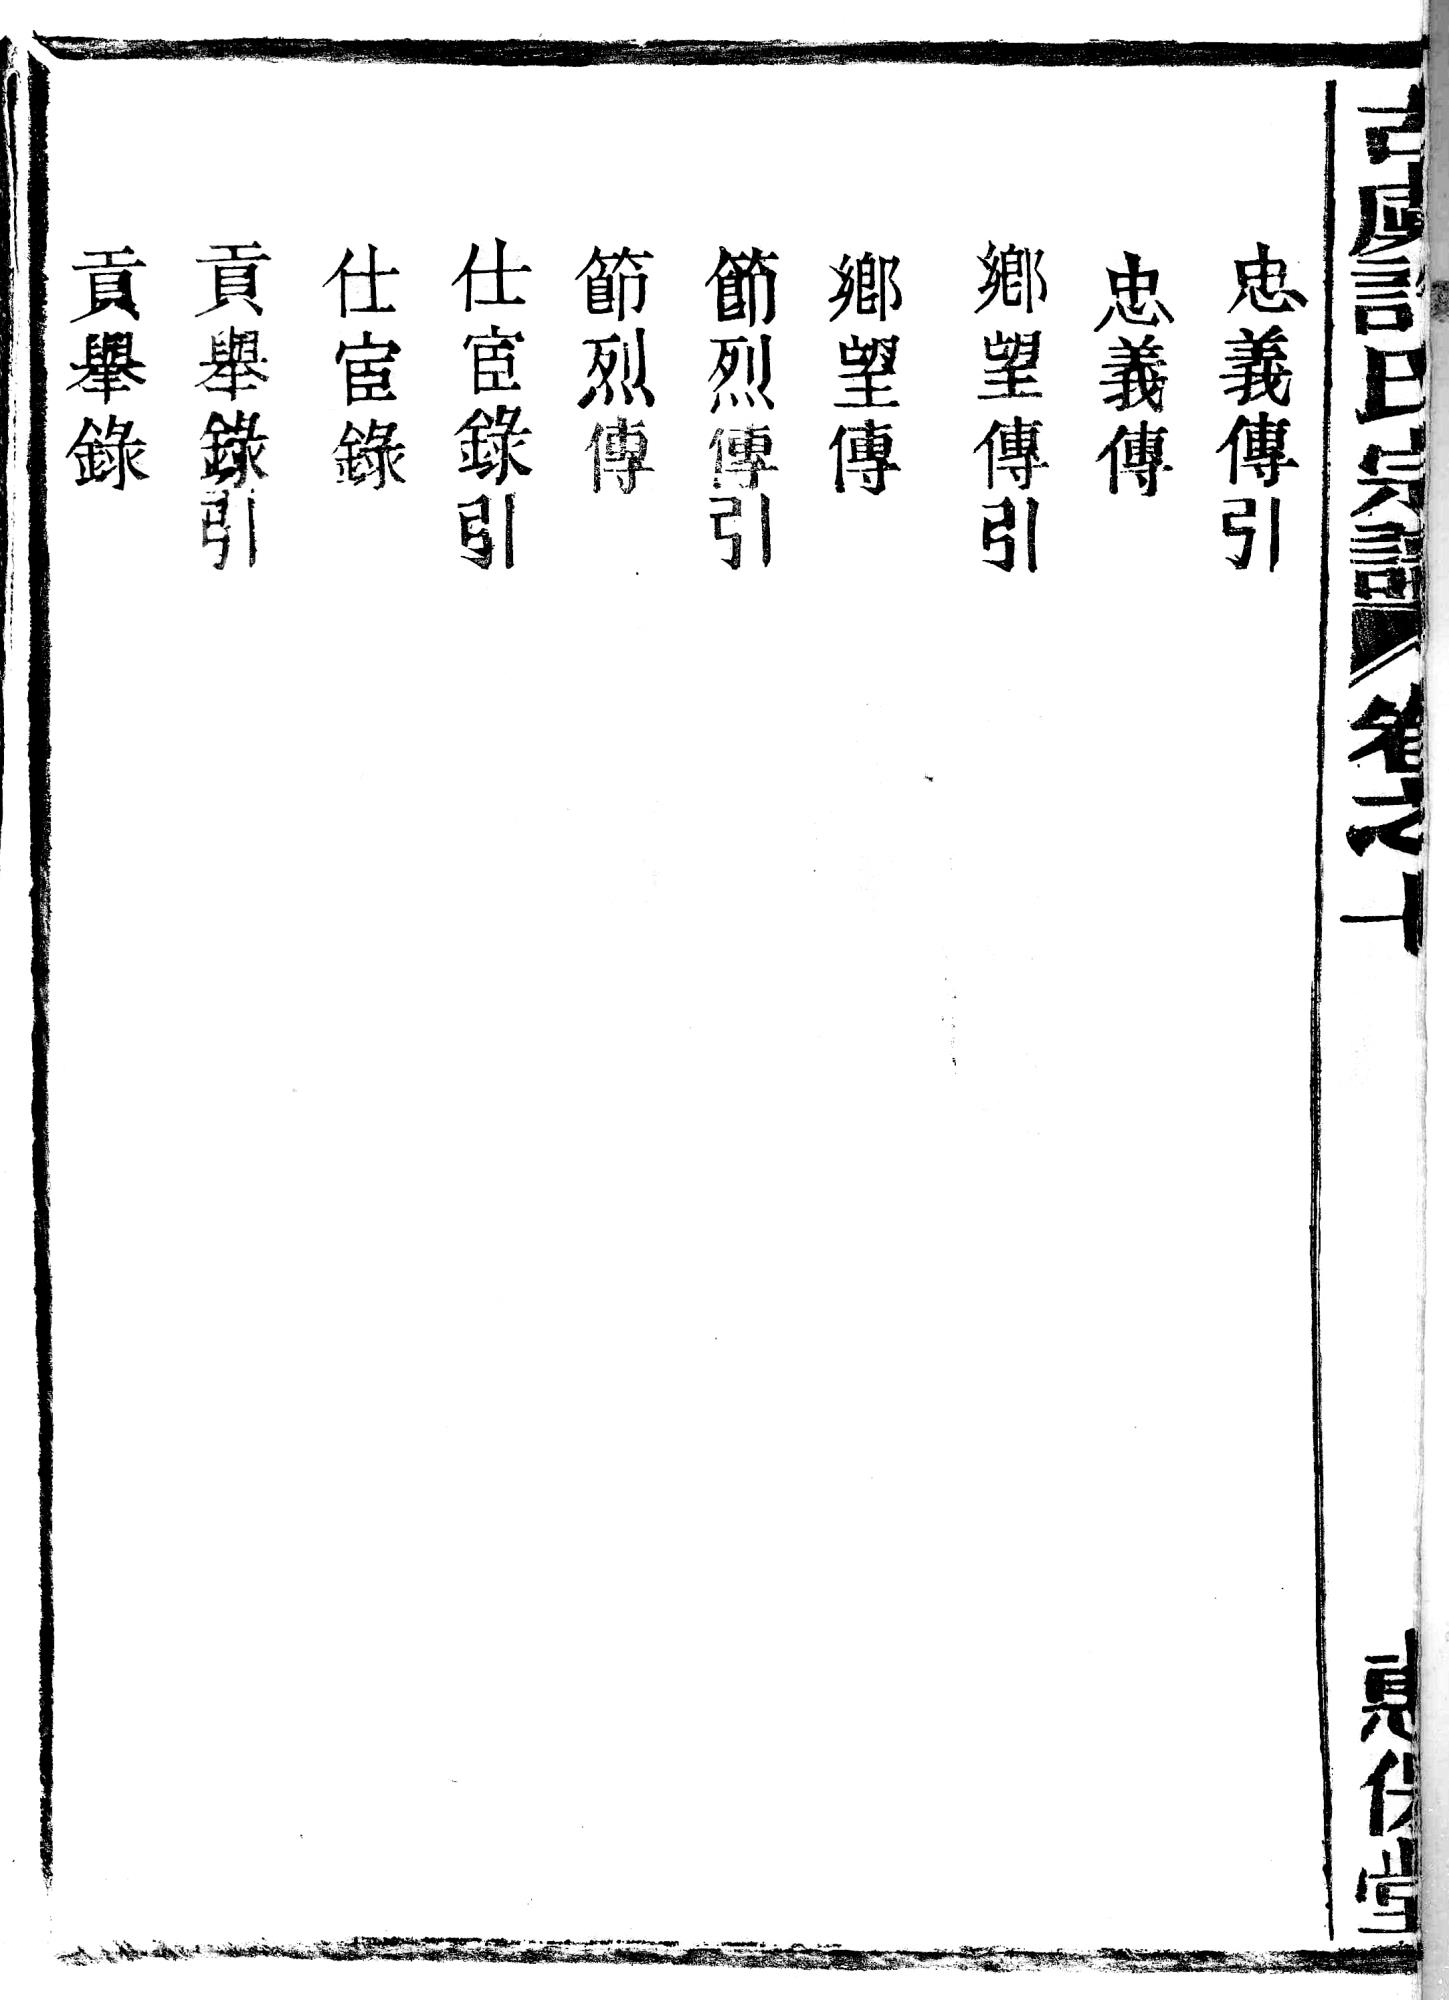 氏宗譜
卷之十
堂
忠義傳引
忠義傳
鄉望傳引
鄉望傳
節烈傳引
節烈傳
仕宦錄引
仕宦錄
貢舉錄引
貢舉錄